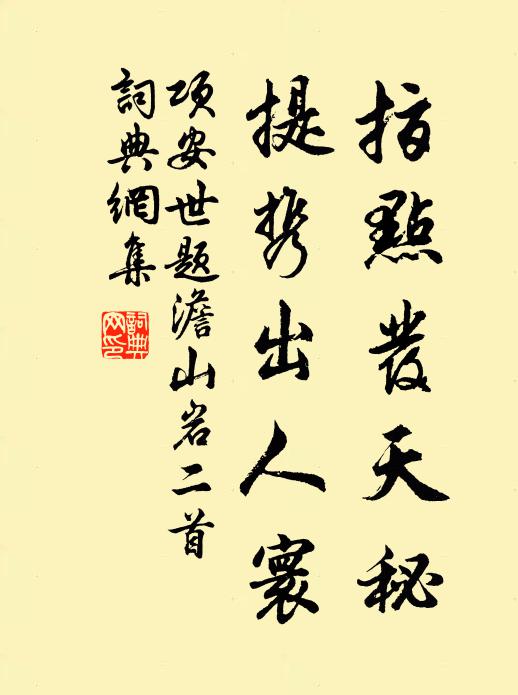 指點發天秘
提携出人寰
项安世题澹山岩二首
詞典網集
詞典網印